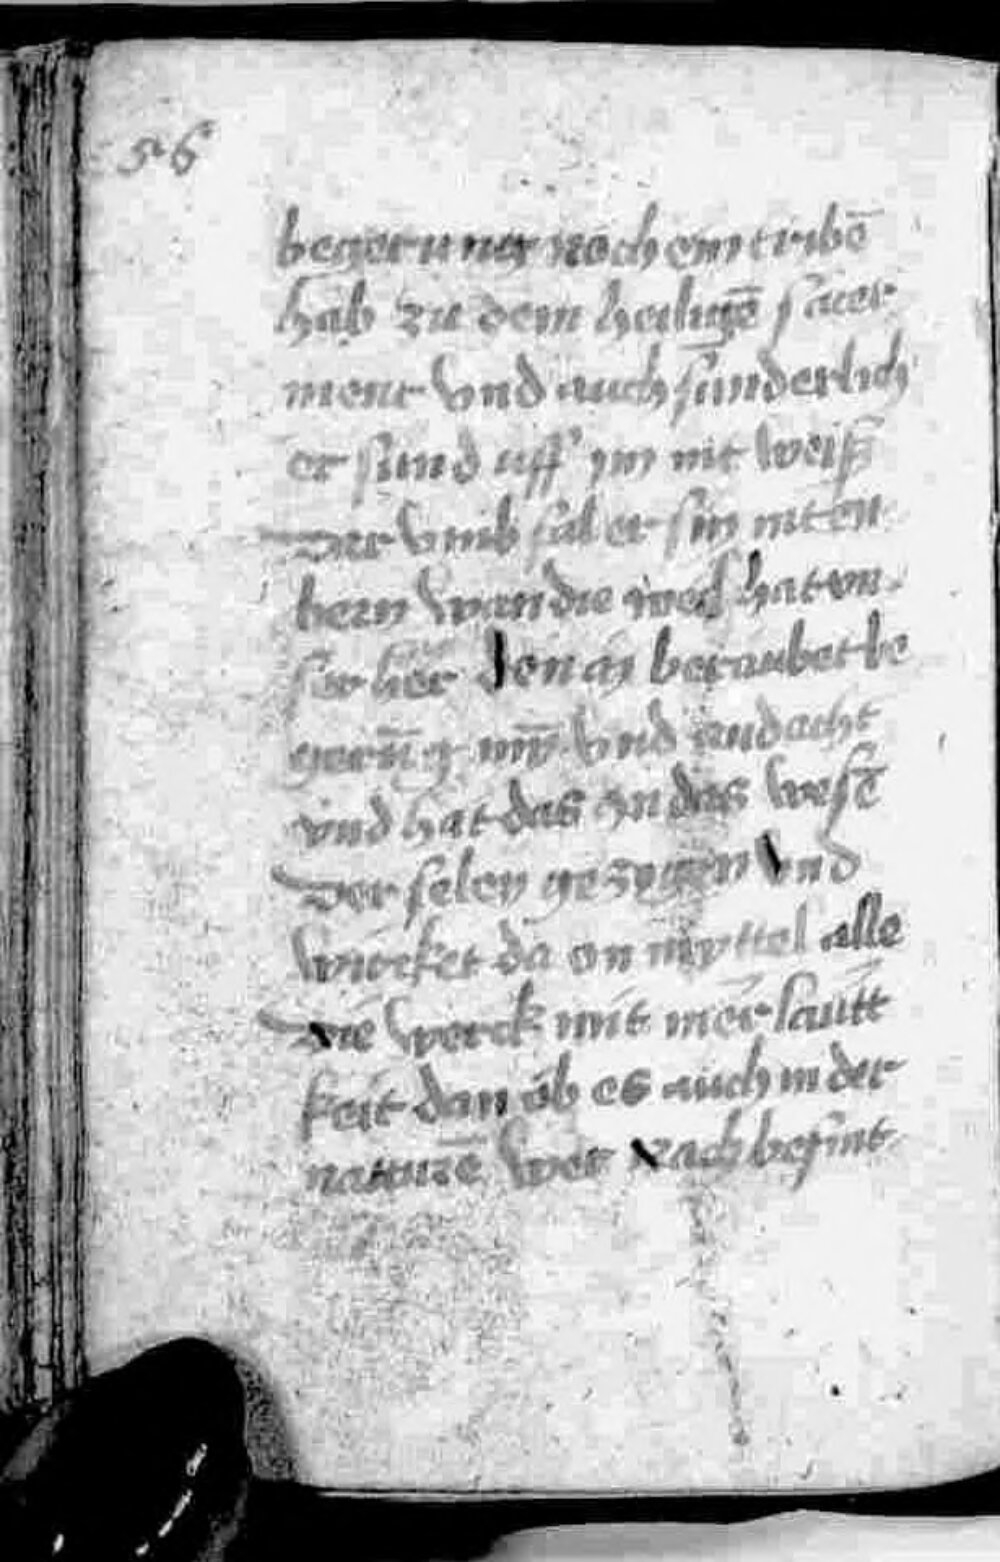 56
begerung noch ein tribē
hab zu dem heiligē sacer
ment vnd auch sunderlich
er sund uff im nit weiß
Dar vmb sal er sin nit en
bern wan die
her beraubet be
vnd andacht
vnd hat das yn das wesē
Der selen gezogen vnd
wircket da on myttel alle
Die werck mit mer lautt
keit dan ob es auch in der
naturē wer nach besint